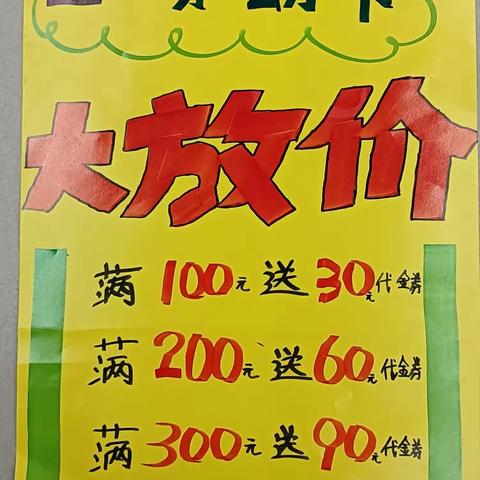 大放价
满100元送30元代金券
满200元送60元代金券
满300元送90元代金券